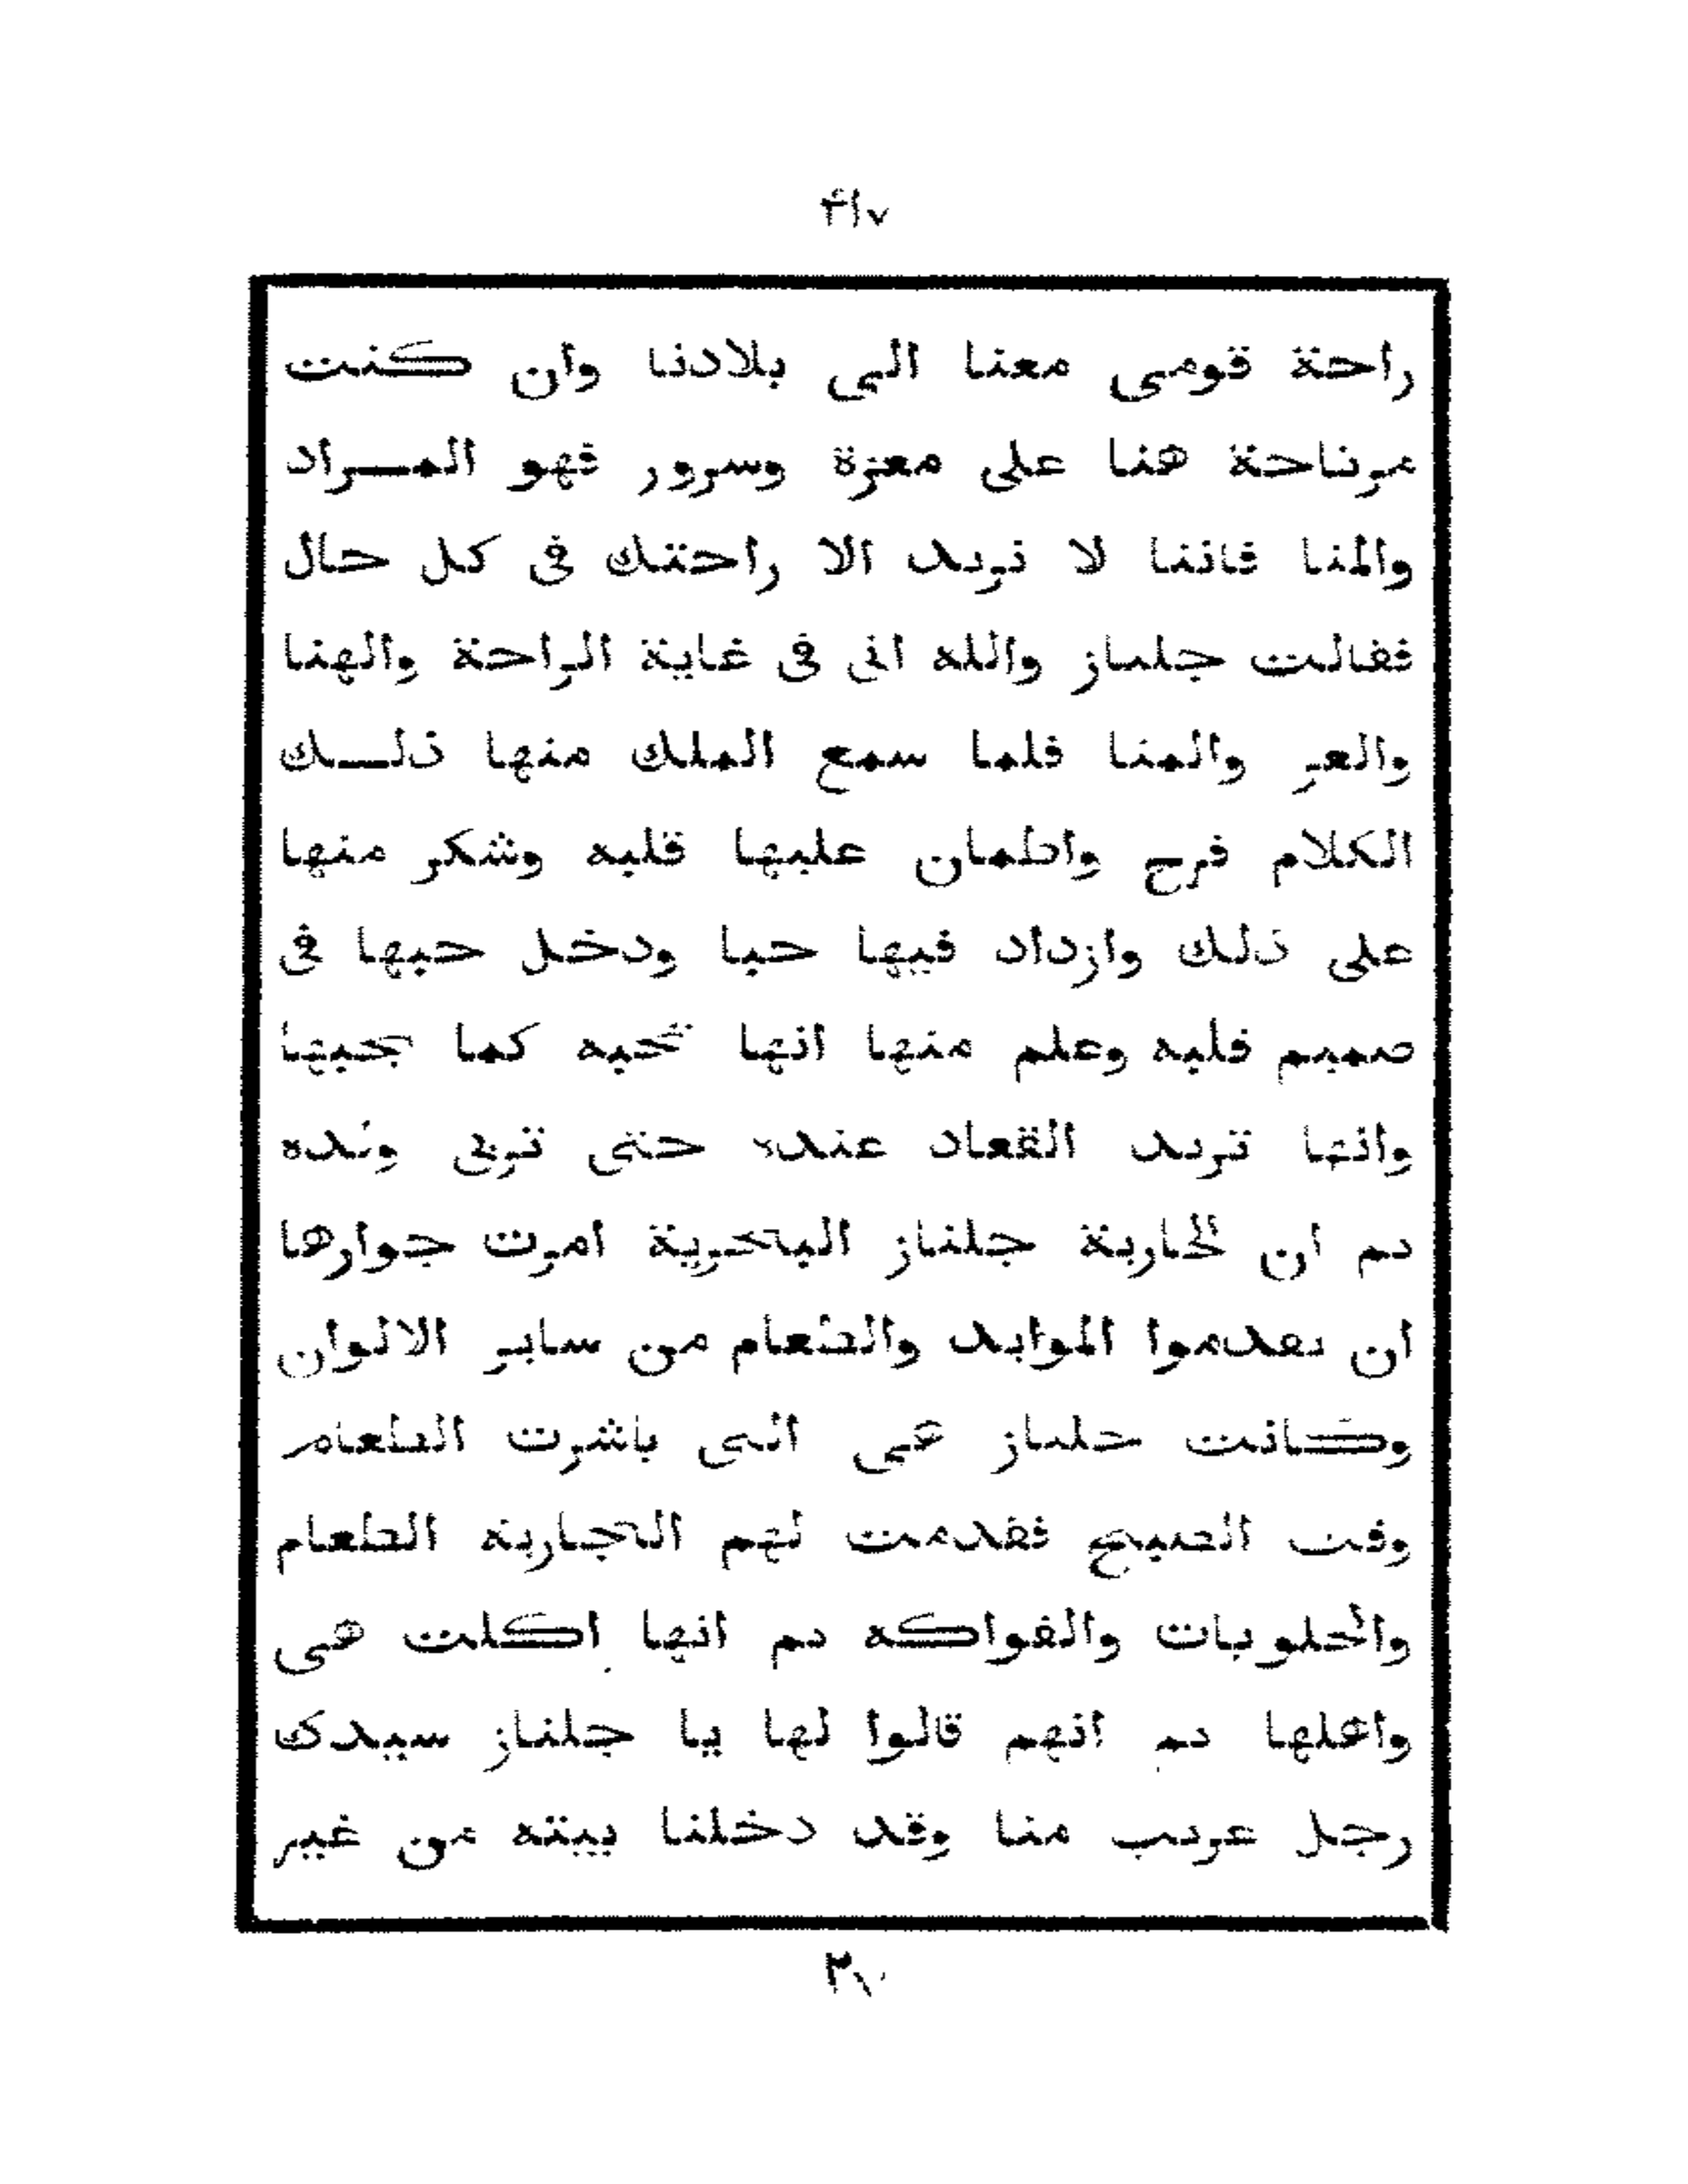 ۴۱۷
راحة قومى معنا الى بلادنا وان كنت
مرتاحة هنا على معزة وسرور فهو المـراد
والمنا فاننا لا نريد الا راحتك فى كل حال
فقالت جلناز والله انى فى غاية الراحة والهنا
والعز والمنا فلما سمع الملك منها ذلـك
الكلام فرح واطمان عليها قلبه وشكر منها
على ذلك وازداد فيها حبا ودخل حبها فى
صميم قلبه وعلم منها انها تحبه كما يحبها
وانها تريد القعاد عنده حتى تربى ولده
ثم ان الجارية جلناز البحرية امرت جوارها
ان يقدموا الموايد والطعام من ساير الالوان
وكانت جلناز هى التى باشرت الطعام
وقت الصبح فقدمت لهم الجارية الطعام
والحلويات والفواكه ثم انها اكلت هى
واهلها ثم انهم قالوا لها يا جلناز سيدك
رجل غريب منا وقد دخلنا بيته من غير